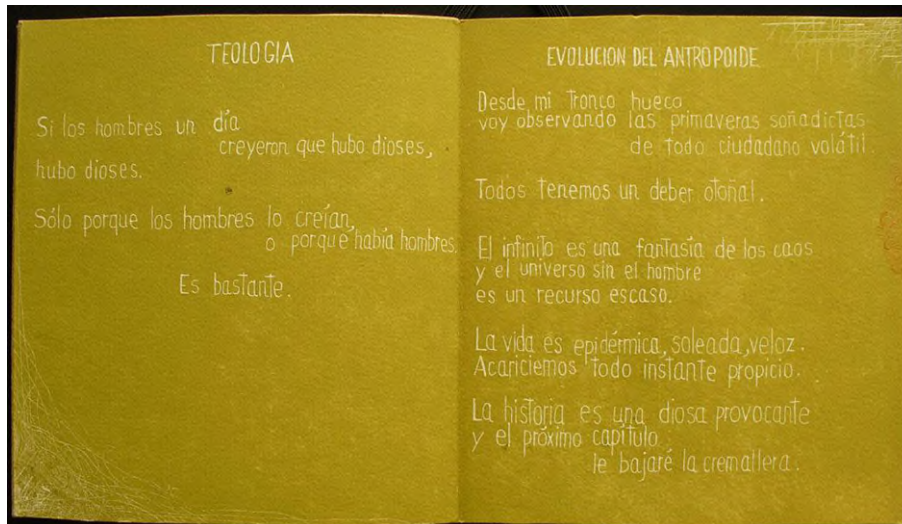 TEOLOGIA
Si los hombres un día
creyeron que hubo dioses,
hubo dioses.
Sólo porque los hombres lo creían,
o porque había hombres.
Es bastante.
EVOLUCION DEL ANTROPOIDE
Desde mi tronco hueco
voy observando las primaveras soñadictas
de todo ciudadano volátil.
Todos tenemos un deber otoñal.
El infinito es una fantasía de los caos
y el universo sin el hombre
es un recurso escaso.
La vida es epidérmica, soleada, veloz.
Acariciemos todo instante propicio.
La historia es una diosa provocante
y el próximo capítulo
le bajaré la cremallera.